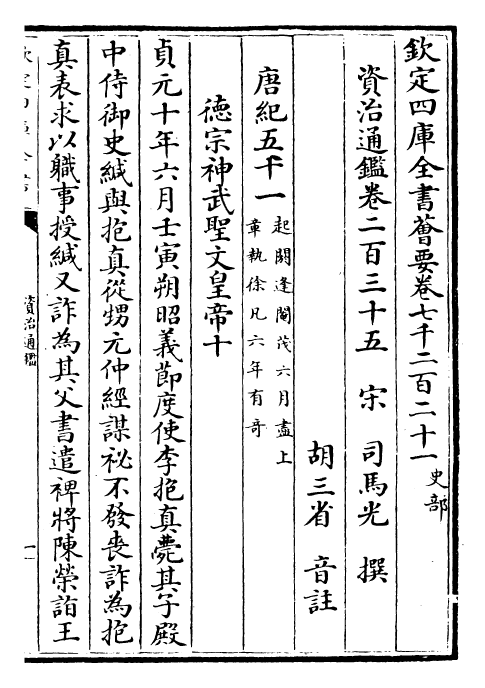 欽定四庫全書薈要卷七千二百二十一 史部
資治通鑑卷二百三十五 宋 司馬光 撰
胡三省 音註
唐紀五十一 起閼逢閹茂六月盡上
章執徐凡六年有奇
徳宗神武聖文皇帝十
貞元十年六月壬寅朔昭義節度使李抱真薨其子殿
中侍御史緘與抱真從甥元仲經謀祕不發喪詐為抱
真表求以職事授緘又詐為其父書遣裨將陳榮詣王
資治通鑑
一